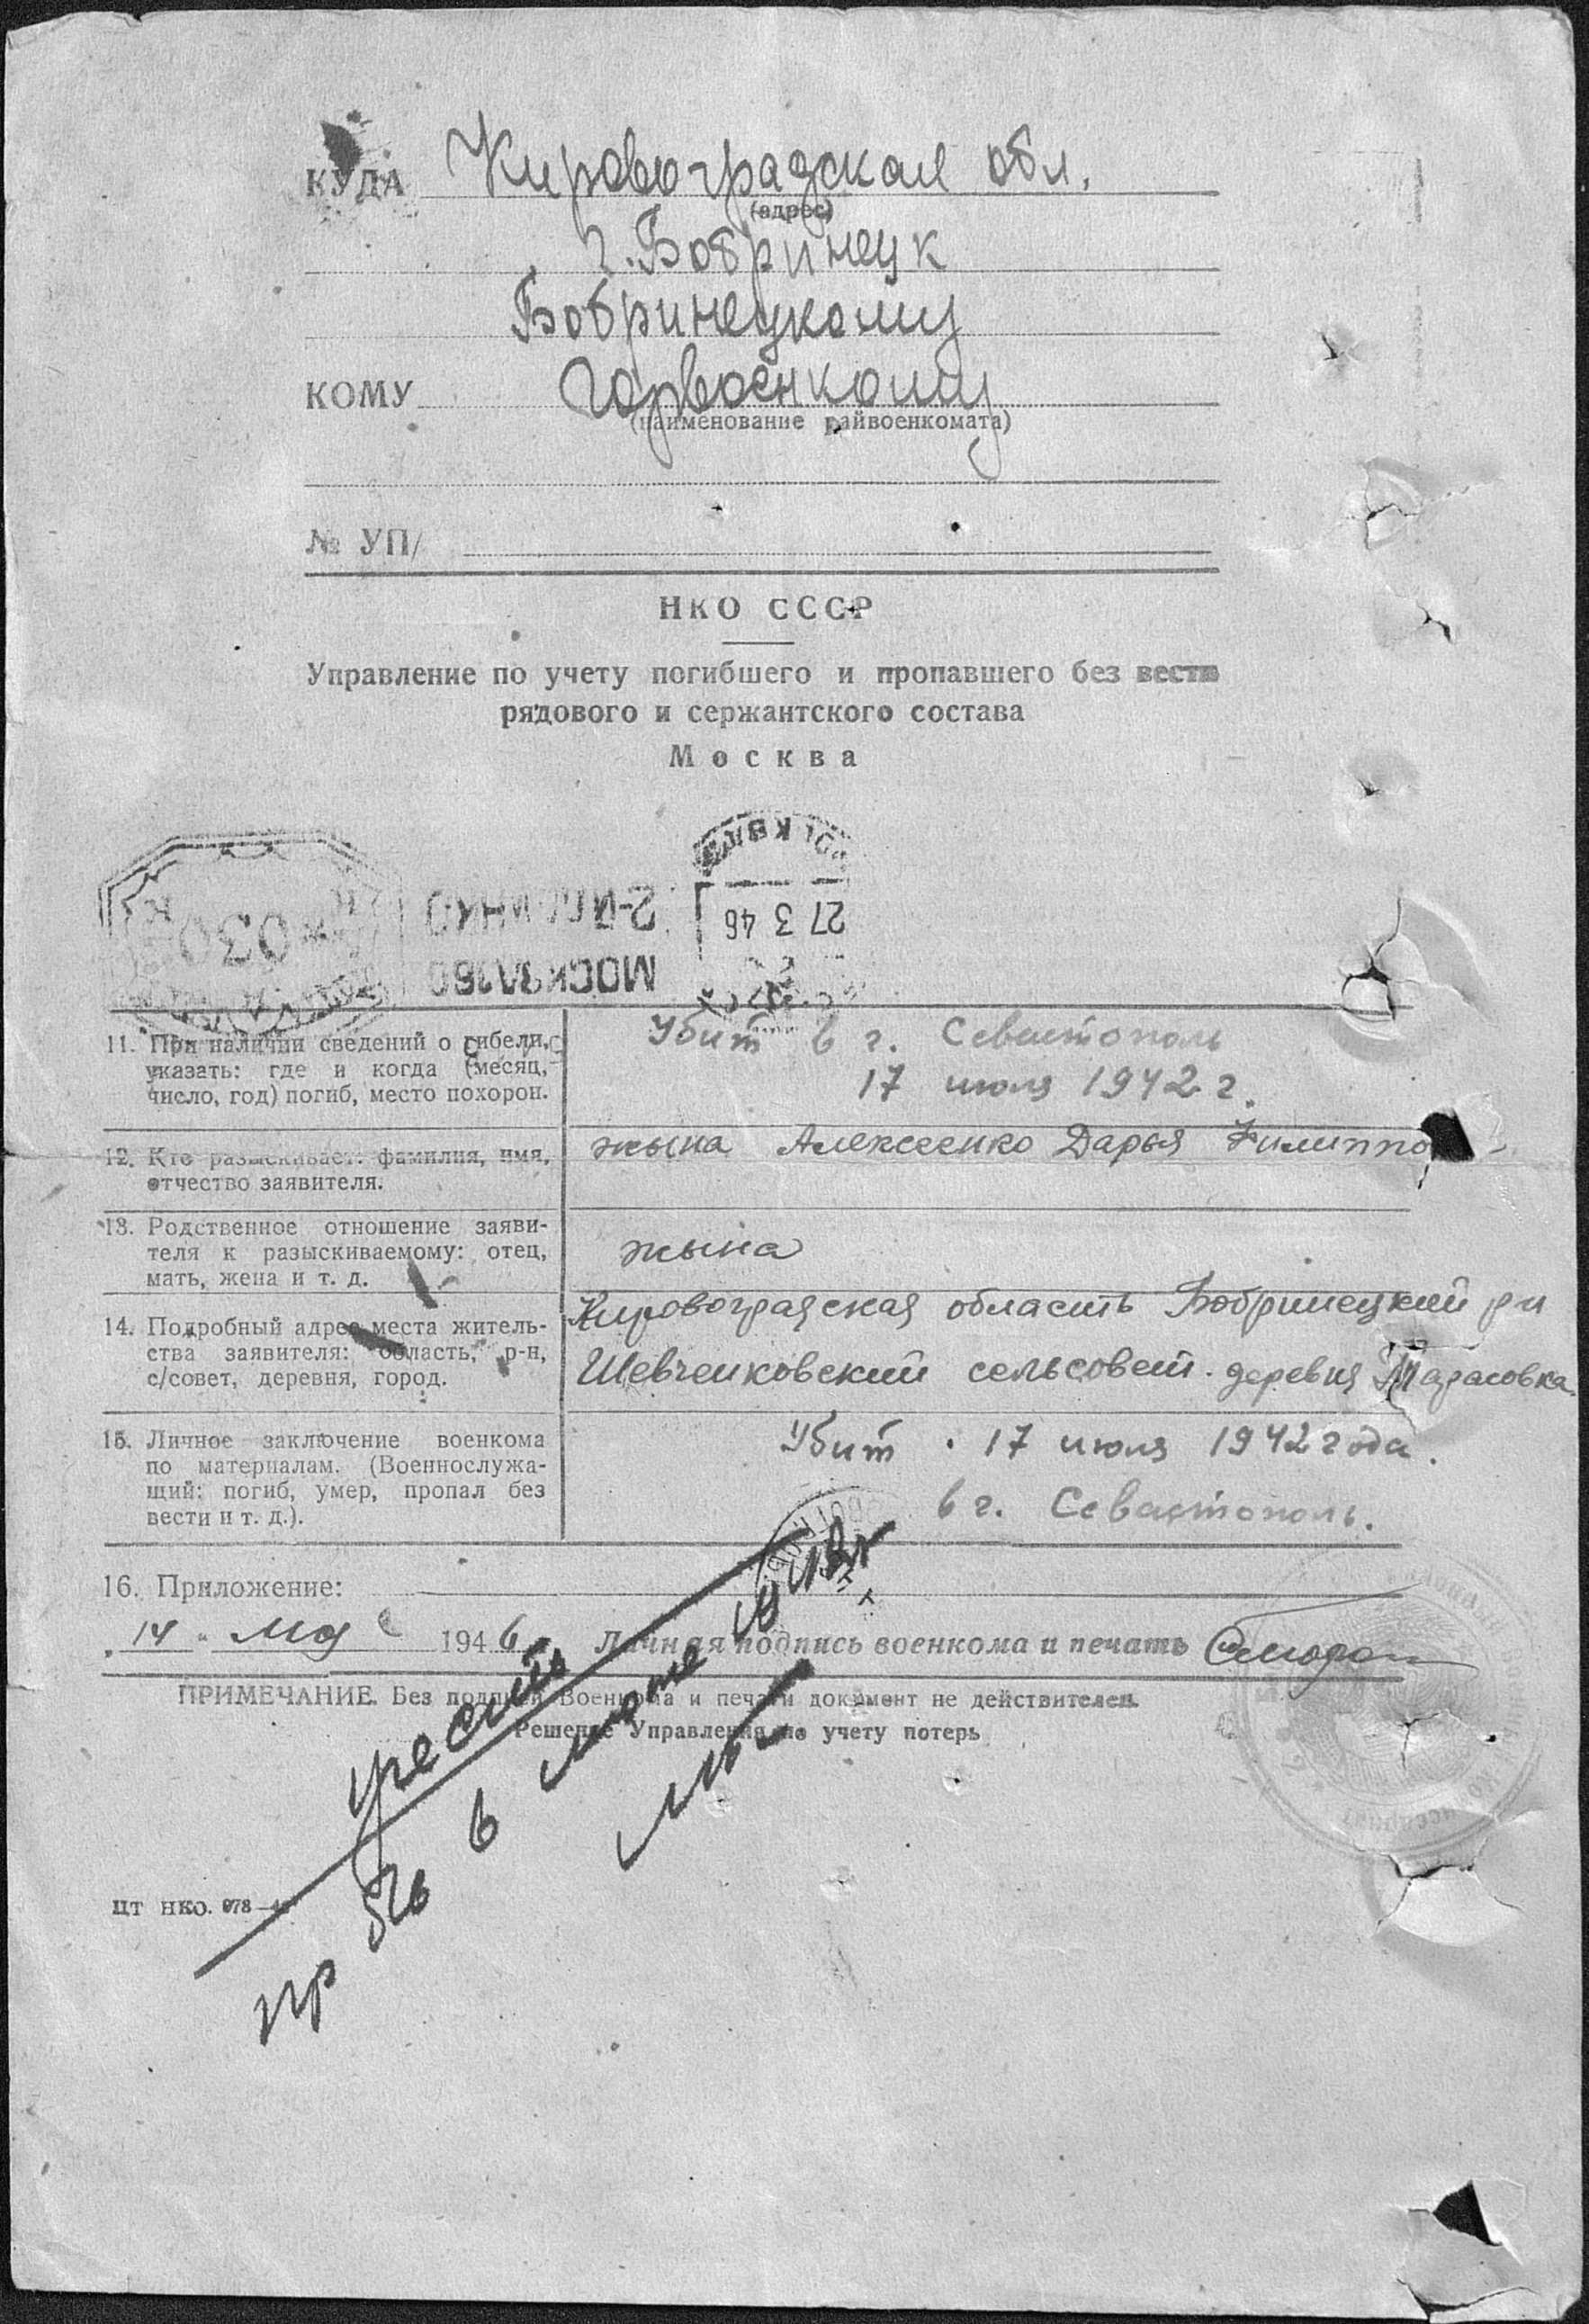 КУДА Кировоградская обл.
(адрес)
г. Бобринецк
Бобринецкому
КОМУ Горвоенкому
(наименование райвоенкомата)
№ УП/
НКО СССР
Управление по учету погибшего и пропавшего без вести
рядового и сержантского состава
Москва
030
2-й
МОСКВА
27 3 46
11. При наличии сведений о гибели, указать: где и когда (месяц, число, год) погиб, место похорон.
Убит в г. Севастополь
17 июля 1942 г.
12. Кто разыскивает: фамилия, имя, отчество заявителя.
жына Алексеенко Дарья Филиппо
13. Родственное отношение заявителя к разыскиваемому: отец, мать, жена и т. д.
жына
14. Подробный адрес места жительства заявителя: область, р-н, с/совет, деревня, город.
Кировоградская область Бобринецкий р-н
Шевченковский сельсовет. деревня Тарасовка.
15. Личное заключение военкома по материалам. (Военнослужащий: погиб, умер, пропал без вести и т. д.).
Убит . 17 июля 1942 года.
в г. Севастополь.
16. Приложение:
14 мая 1946 Личная подпись военкома и печать
ПРИМЕЧАНИЕ. Без подписи Военкома и печати документ не действителен.
Решение Управления по учету потерь
ЦТ НКО. 978